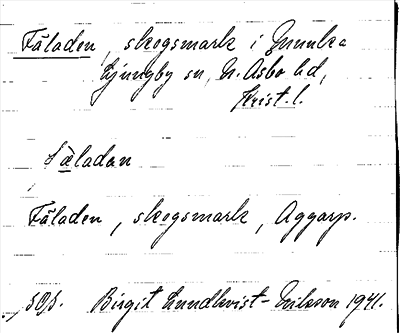 Fäladen, skogsmark i Munka
Ljungby sn, N. Åsbo hd,
Krist. l.
fäladan
Fäladen, skogsmark, Aggarp.
SOS. Birgit Lundkvist-Eriksson 1941.